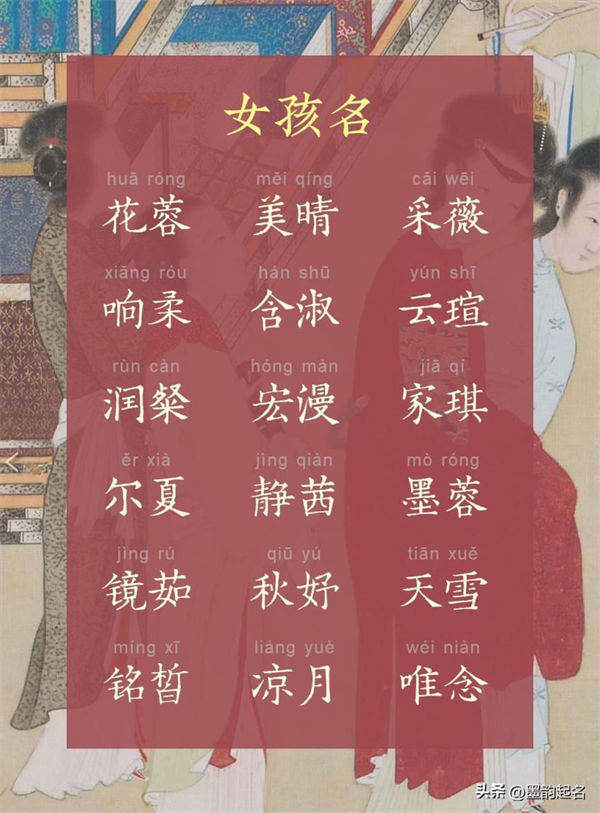 女孩名
huā róng měi qíng cǎi wēi
花蓉 美晴 采薇
xiǎng róu hán shū yún shī
响柔 含淑 云瑄
rùn càn hóng màn jiā qí
润粲 宏漫 家琪
ěr xià jìng qiàn mò róng
尔夏 静茜 墨蓉
jìng rú qiū yú tiān xuě
镜茹 秋妤 天雪
míng xī liáng yuè wéi niàn
铭皙 凉月 唯念
头条 @墨韵起名